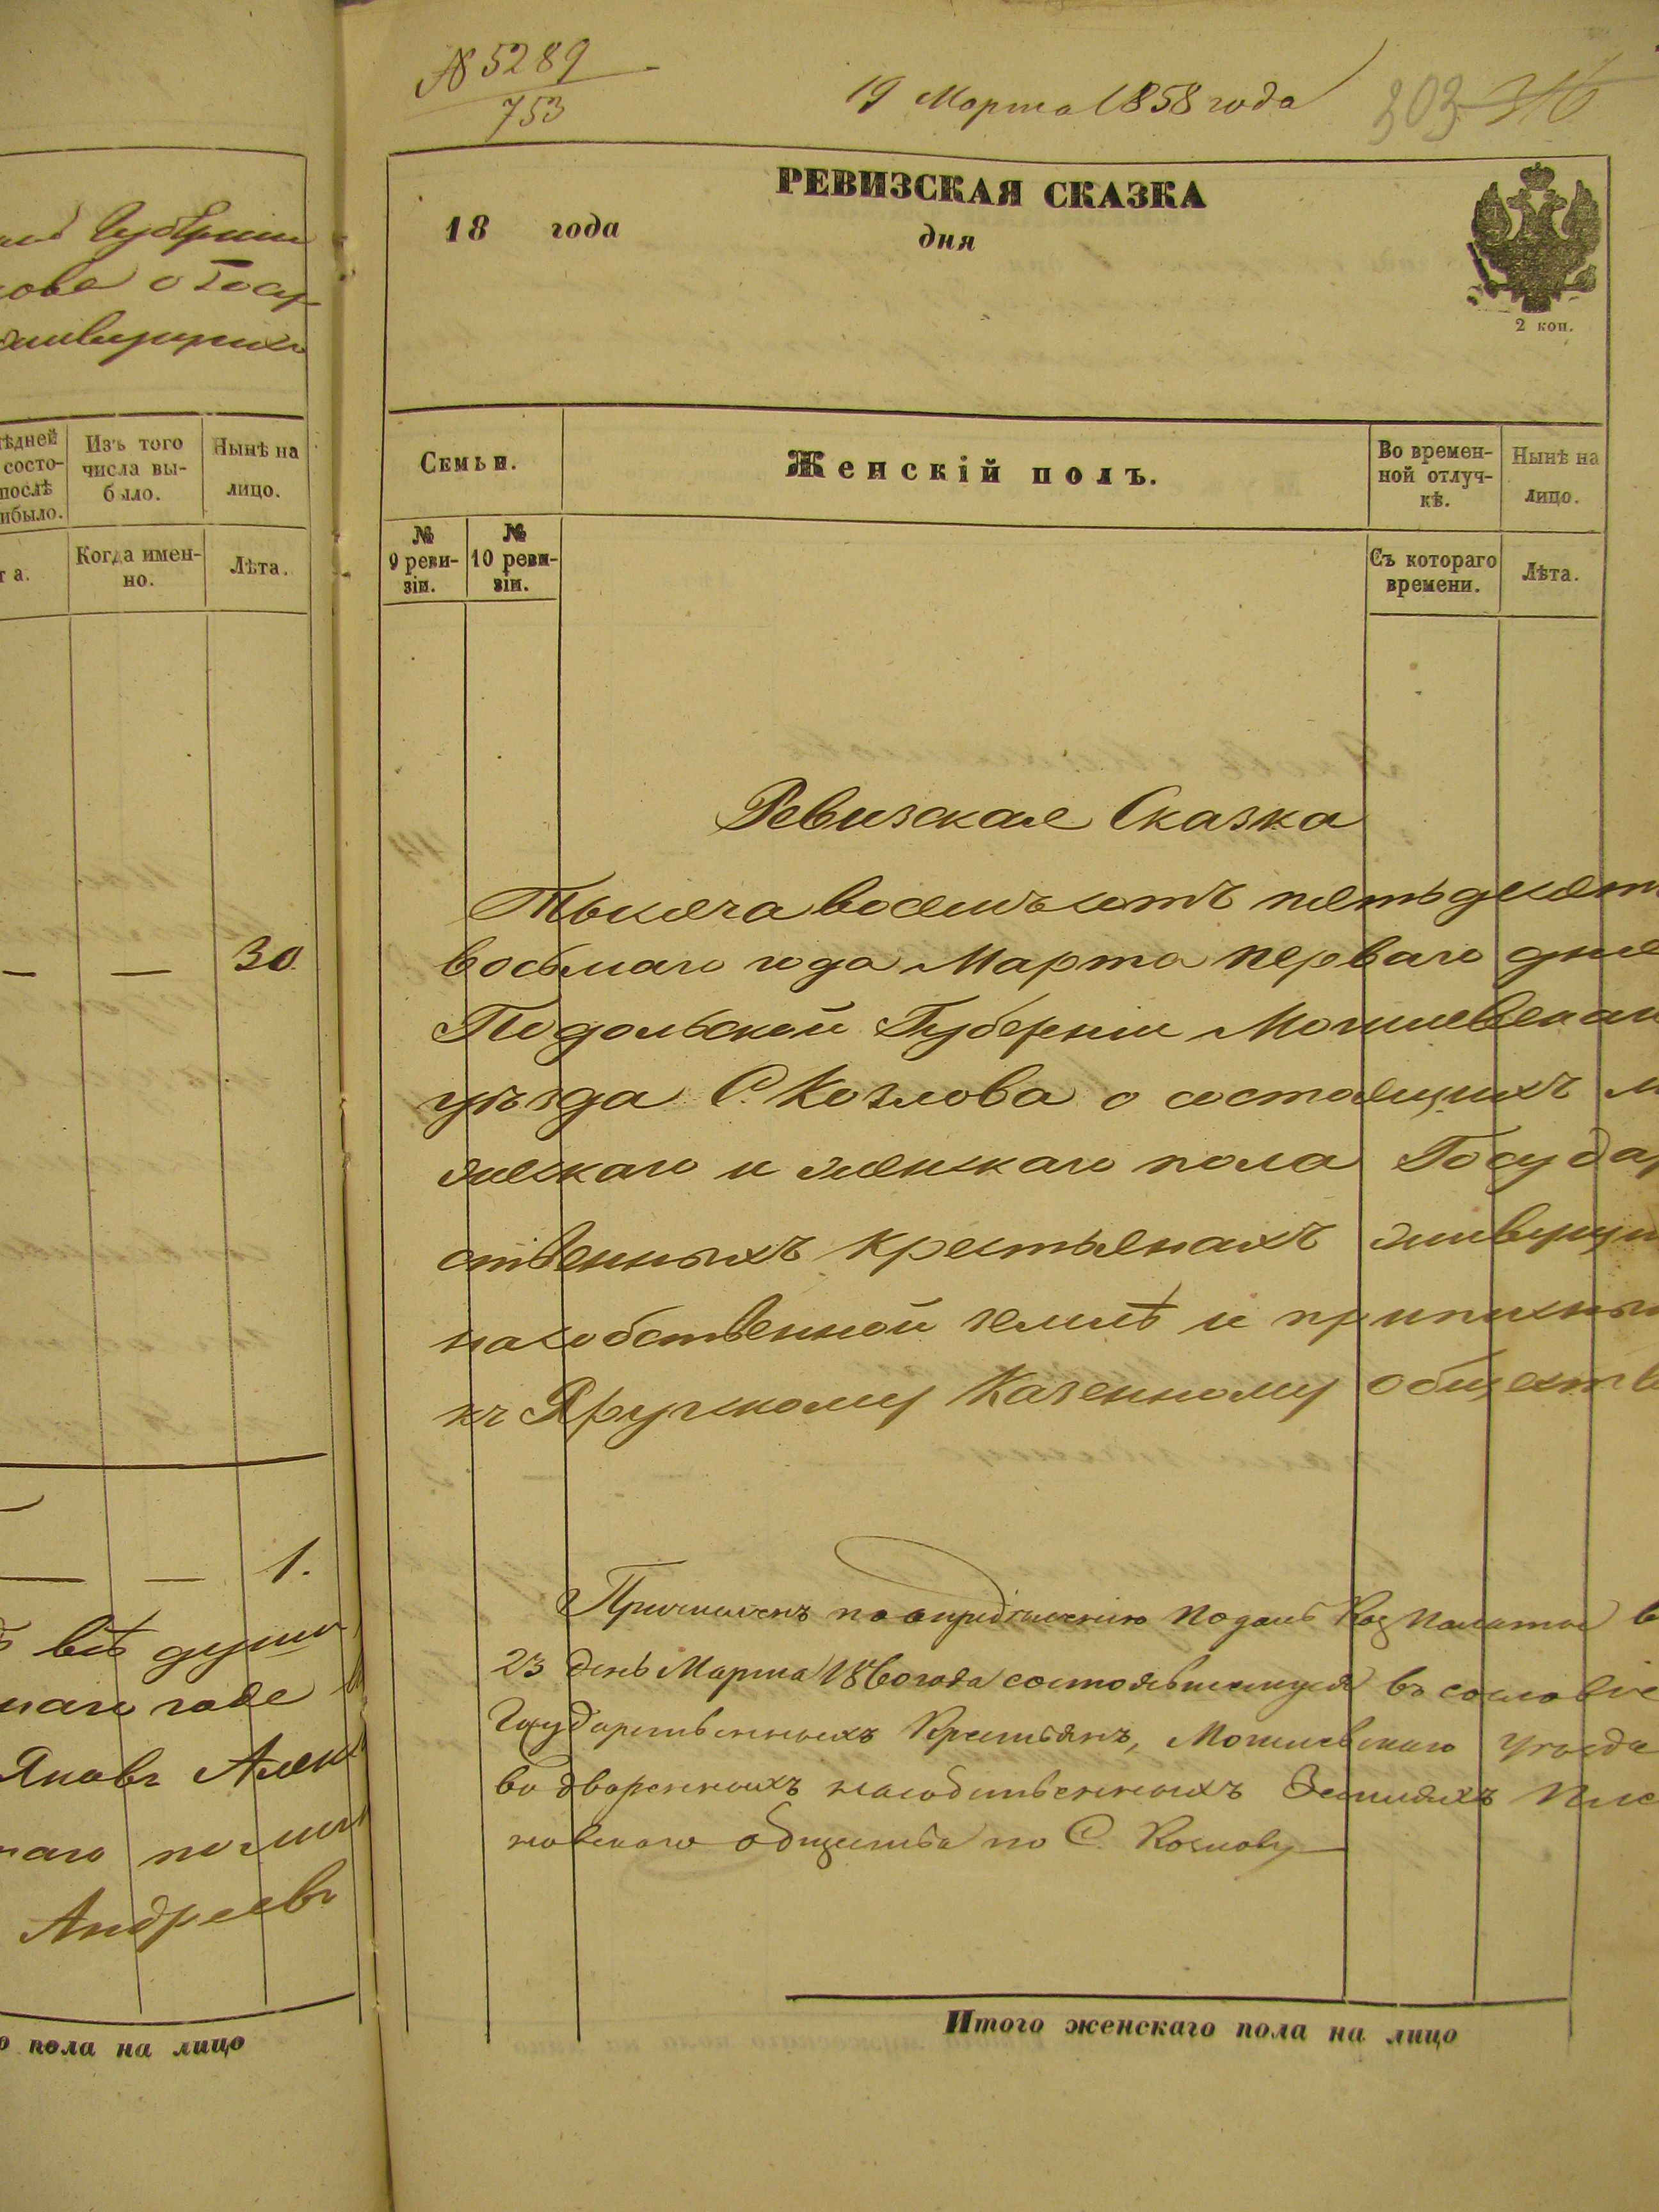 губерніи
о Госу
живущихъ
ѣдней
состо-
послѣ
ибыло.
Изъ того
числа вы-
было.
Нынѣ на
лицо.
та.
Когда имен-
но.
Лѣта.
— — 30
— — 1.
всѣ души
наго года
Яковъ Алек
Андреевъ
о пола на лицо
№ 5289
753
19 Марта 1858 года
303 316
РЕВИЗСКАЯ СКАЗКА
18 года дня
2 коп.
Семьи.
Женскій полъ.
Во времен-
ной отлуч-
кѣ.
Нынѣ на
лицо.
№
9 реви-
зіи.
№
10 реви-
зіи.
Съ котораго
времени.
Лѣта.
Ревизская Сказка
Тысяча восемьсотъ пятьдесят
восьмаго года Марта перваго дня
Подольской Губерніи Могилевскаг
уѣзда С. Козлова о состоящихъ м
жескаго и женскаго пола Государ
ственныхъ крестьянахъ живущи
на собственной землѣ и приписны
къ Яругскому Казенному обществ
Причисленъ по опредѣленію Подоль Каз Палаты в
23 день Марта 1860 года состоявшемуся въ сословіе
Государственныхъ Крестьянъ, Могилевскаго уѣзда
водворенныхъ на собственныхъ Земляхъ
новскаго общества по С. Козлову
Итого женскаго пола на лицо